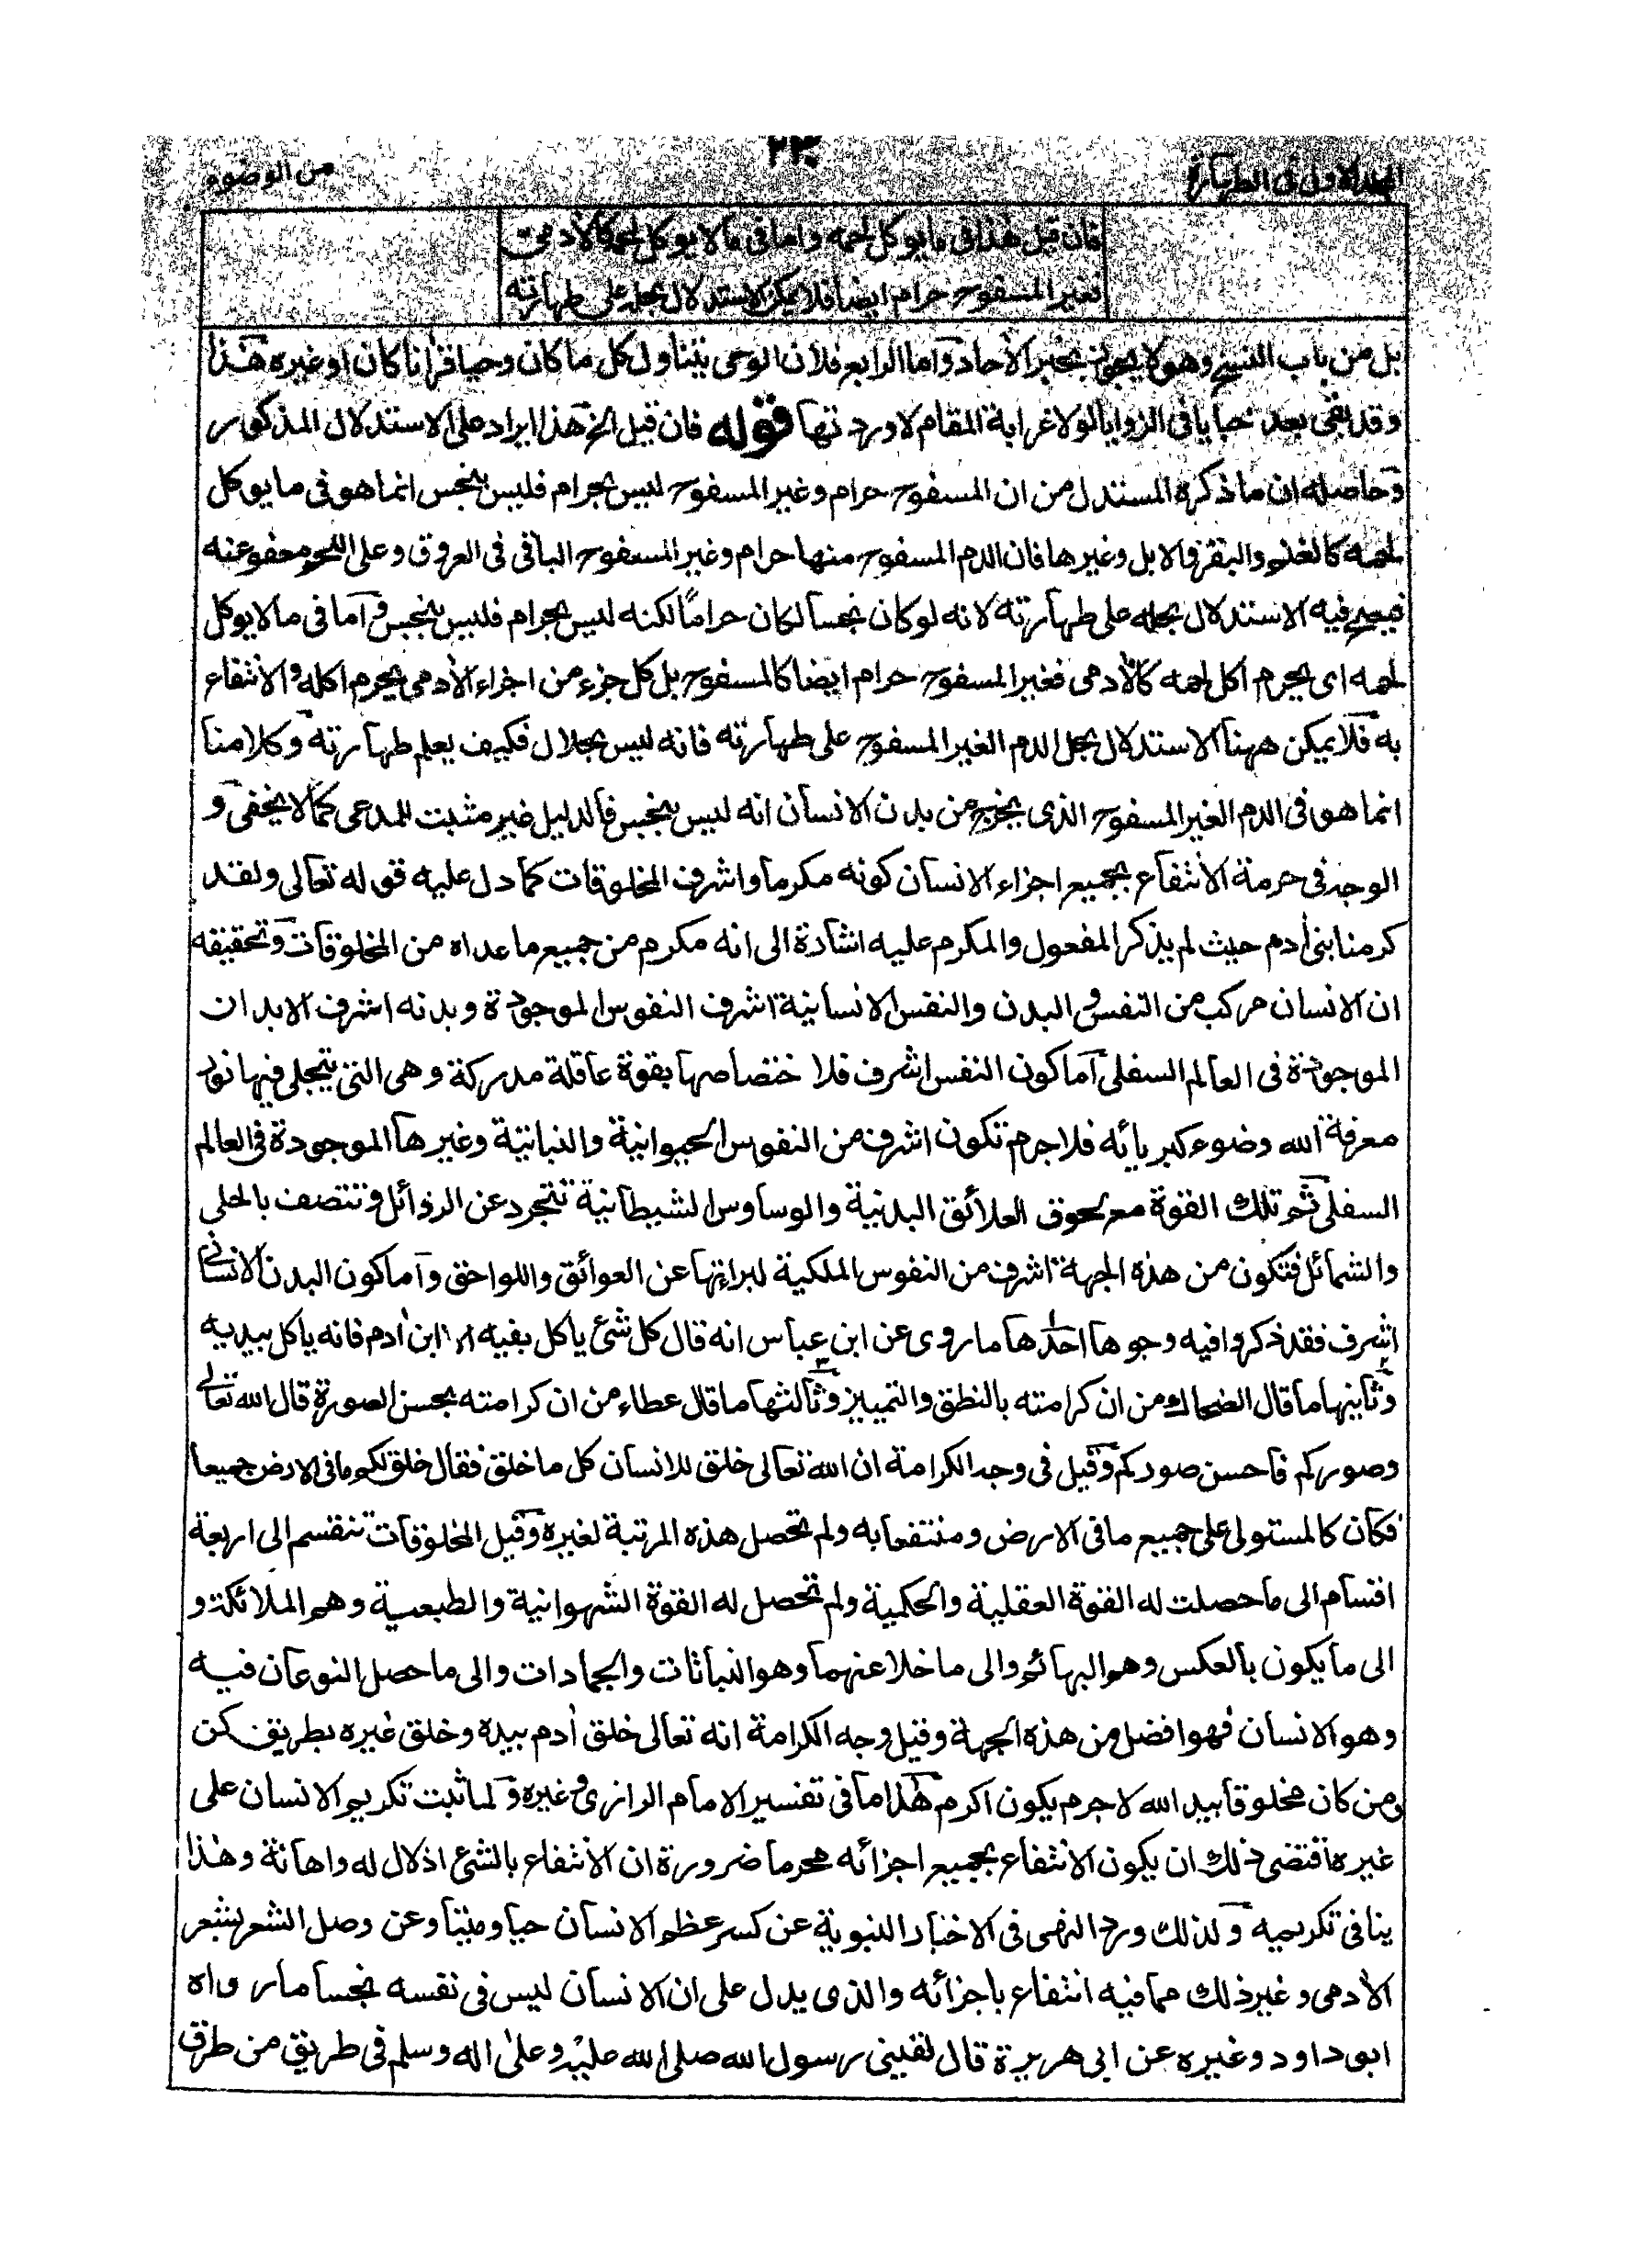 المجلد الاول فى الطهارة
٢٣٠
من الوضوء
فان قيل هذا فى ما يوكل لحمه واما فى ما لا يوكل لحمه كالأدمى
فغير المسفوح حرام ايضا فلا يمكن الاستدلال بحله على طهارته
بل من باب النسخ وهو لا يجوز بخبر الأحاد وآما الرابع فلأن الوحى يتناول كل ما كان وحيا قرأنا كان او غيره هذا
وقد بقى بعد خبايا فى الزوايا لولا غرابة المقام لاوردتها قوله فان قيل الخ هذا ايراد على الاستدلال المذكور
وحاصله ان ما ذكره المستدل من ان المسفوح حرام وغير المسفوح ليس بحرام فليس بنجس انما هو فى ما يوكل
لحمه كالغنم والبقر والابل وغيرها فان الدم المسفوح منها حرام وغير المسفوح الباقى فى العروق وعلى اللحم معفو عنه
فيصح فيه الاستدلال بحله على طهارته لانه لو كان نجسا لكان حراماً لكنه ليس بحرام فليس بنجس وآما فى ما لا يوكل
لحمه اى يحرم اكل لحمه كالأدمى فغير المسفوح حرام ايضا كالمسفوح بل كل جزء من اجزاء الأدمى يحرم اكله والانتفاع
به فلا يمكن ههنا الاستدلال بحل الدم الغير المسفوح على طهارته فانه ليس بحلال فكيف يعلم طهارته وكلامنا
انما هو فى الدم الغير المسفوح الذى يخرج من بدن الانسان انه ليس بنجس فالدليل غير مثبت للمدعى كما لا يخفى و
الوجه فى حرمة الانتفاع بجميع اجزاء الانسان كونه مكرما واشرف المخلوقات كما دل عليه قوله تعالى ولقد
كرمنا بنى أدم حيث لم يذكر المفعول والمكرم عليه اشارة الى انه مكرم من جميع ما عداه من المخلوقات وتحقيقه
ان الانسان مركب من النفس والبدن والنفس الانسانية اشرف النفوس الموجودة وبدنه اشرف الابدان
الموجودة فى العالم السفلى آما كون النفس اشرف فلاختصاصها بقوة عاقلة مدركة وهى التى يتجلى فيها نور
معرفة الله وضوء كبريائه فلا جرم تكون اشرف من النفوس الحيوانية والنباتية وغيرها الموجودة فى العالم
السفلى ثم تلك القوة مع لحوق العلائق البدنية والوساوس الشيطانية تتجرد عن الرذائل وتتصف بالحلى
والشمائل فتكون من هذه الجهة اشرف من النفوس الملكية لبراءتها عن العوائق واللواحق وآما كون البدن الانسانى
اشرف فقد ذكروا فيه وجوها احدها ما روى عن ابن عباس انه قال كل شئ ياكل بفيه الا ابن أدم فانه ياكل بيديه
وثانيها ما قال الضحاك من ان كرامته بالنطق والتمييز وثالثها ما قال عطاء من ان كرامته بحسن الصورة قال الله تعالى
وصوركم فاحسن صوركم وقيل فى وجه الكرامة ان الله تعالى خلق للانسان كل ما خلق فقال خلق لكم ما فى الارض جميعا
فكان كالمستولى على جميع ما فى الارض ومنتفعا به ولم تحصل هذه المرتبة لغيره وقيل المخلوقات تنقسم الى اربعة
اقسام الى ما حصلت له القوة العقلية والحكمية ولم تحصل له القوة الشهوانية والطبعية وهم الملائكة و
الى ما يكون بالعكس وهو البهائم والى ما خلا عنهما وهو النباتات والجمادات والى ما حصل النوعان فيه
وهو الانسان فهو افضل من هذه الجهة وقيل وجه الكرامة انه تعالى خلق أدم بيده وخلق غيره بطريق كن
ومن كان مخلوقا بيد الله لا جرم يكون اكرم هذا ما فى تفسير الامام الرازى وغيره ولما ثبت تكريم الانسان على
غيره اقتضى ذلك ان يكون الانتفاع بجميع اجزائه محرما ضرورة ان الانتفاع بالشئ اذلال له واهانة وهذا
ينافى تكريمه ولذلك ورد النهى فى الاخبار النبوية عن كسر عظم الانسان حيا وميتا وعن وصل الشعر بشعر
الأدمى وغير ذلك مما فيه انتفاع باجزائه والذى يدل على ان الانسان ليس فى نفسه نجسا ما رواه
ابو داود وغيره عن ابى هريرة قال لقينى رسول الله صلى الله عليه وعلى اله وسلم فى طريق من طرق